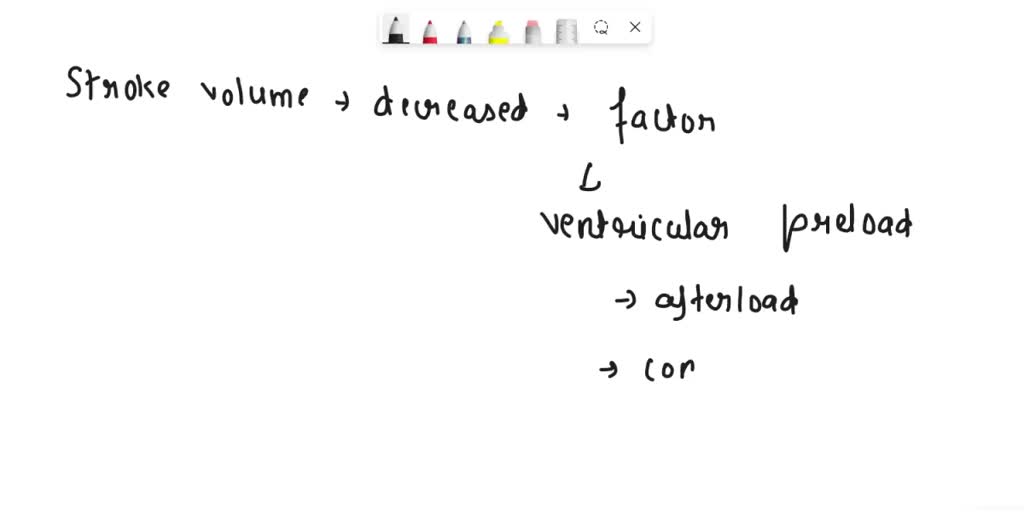 Stroke volume → decreased → factor
ventricular preload
→ afterload
→ con